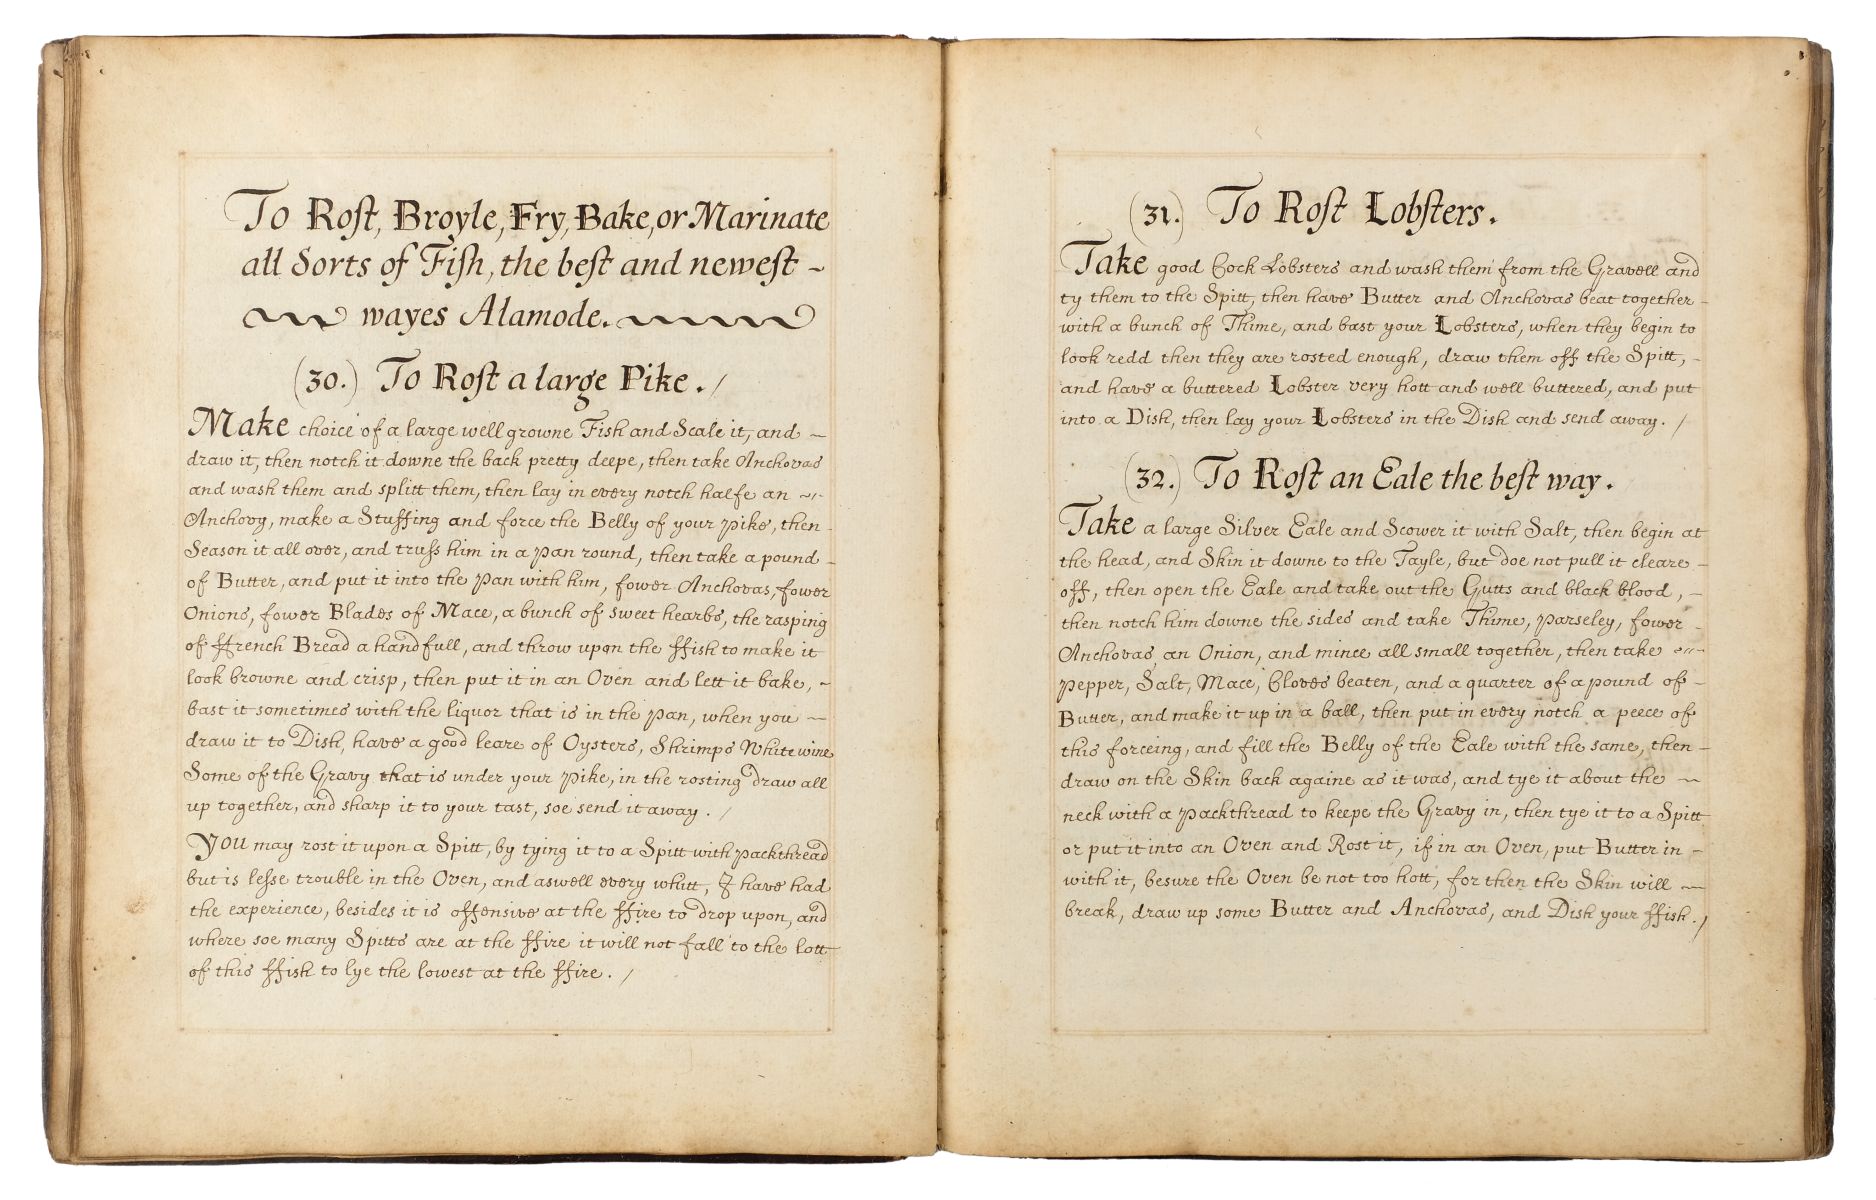 To Rost, Broyle, Fry, Bake, or Marinate
all Sorts of Fish, the best and newest
wayes Alamode.
(30.) To Rost a large Pike.
Make choice of a large well growne Fish and Scale it, and
draw it, then notch it downe the back pretty deepe, then take Anchovas
and wash them and splitt them, then lay in every notch halfe an
Anchovy, make a Stuffing and force the Belly of your pike, then
Season it all over, and truss him in a pan round, then take a pound
of Butter, and put it into the pan with him, fower Anchovas, fower
Onions, fower Blades of Mace, a bunch of sweet hearbs, the rasping
of ffrench Bread a handfull, and throw upon the ffish to make it
look browne and crisp, then put it in an Oven and lett it bake,
bast it sometimes with the liquor that is in the pan, when you
draw it to Dish, have a good leare of Oysters, Shrimps White wine
Some of the Gravy that is under your pike, in the rosting draw all
up together, and sharp it to your tast, soe send it away.
You may rost it upon a Spitt, by tying it to a Spitt with packthread
but is lesse trouble in the Oven, and aswell every whitt, I have had
the experience, besides it is offensive at the ffire to drop upon, and
where soe many Spitts are at the ffire it will not fall to the lott
of this ffish to lye the lowest at the ffire.
(31.) To Rost Lobsters.
Take good Cock Lobsters and wash them from the Gravell and
ty them to the Spitt, then have Butter and Anchovas beat together
with a bunch of Thime, and bast your Lobsters, when they begin to
look redd then they are rosted enough, draw them off the Spitt,
and have a buttered Lobster very hott and well buttered, and put
into a Dish, then lay your Lobsters in the Dish and send away.
(32.) To Rost an Eale the best way.
Take a large Silver Eale and Scower it with Salt, then begin at
the head, and Skin it downe to the Tayle, but doe not pull it cleare
off, then open the Eale and take out the Gutts and black blood,
then notch him downe the sides and take Thime, parseley, fower
Anchovas, an Onion, and mince all small together, then take
pepper, Salt, Mace, Cloves beaten, and a quarter of a pound of
Butter, and make it up in a ball, then put in every notch a peece of
this forceing, and fill the Belly of the Eale with the same, then
draw on the Skin back againe as it was, and tye it about the
neck with a packthread to keepe the Gravy in, then tye it to a Spitt
or put it into an Oven and Rost it, if in an Oven, put Butter in
with it, besure the Oven be not too hott, for then the Skin will
break, draw up some Butter and Anchovas, and Dish your ffish.